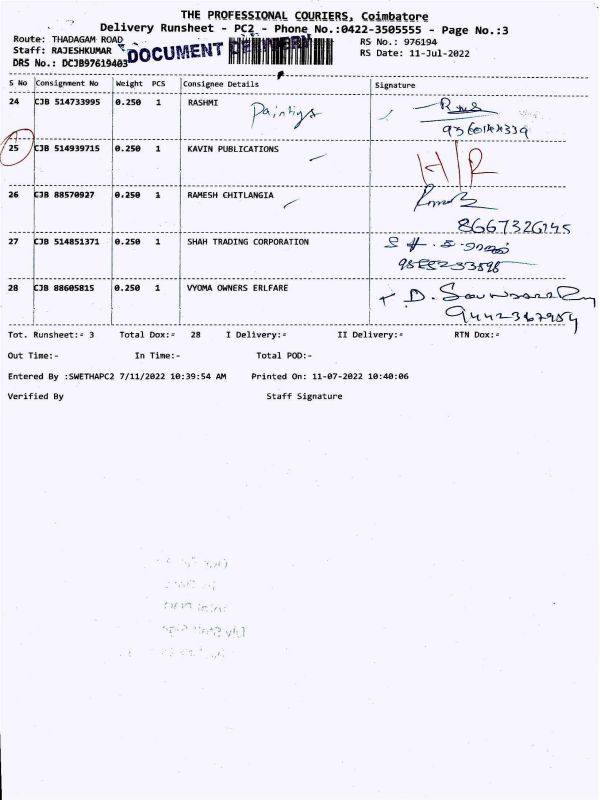 THE PROFESSIONAL COURIERS, Coimbatore
Delivery Runsheet - PC2 - Phone No.:0422-3505555 - Page No.:3
Route: THADAGAM ROAD
RS No.: 976194
Staff: RAJESHKUMAR
DOCUMENT
RS Date: 11-Jul-2022
DRS No.: DCJB97619403
S No Consignment No Weight PCS Consignee Details Signature
24 CJB 514733995 0.250 1 RASHMI Paintings
25 CJB 514939715 0.250 1 KAVIN PUBLICATIONS H/R
26 CJB 88570927 0.250 1 RAMESH CHITLANGIA
8667326145
27 CJB 514851371 0.250 1 SHAH TRADING CORPORATION
28 CJB 88605815 0.250 1 VYOMA OWNERS ERLFARE
9442367954
Tot. Runsheet:= 3 Total Dox:= 28 I Delivery:= II Delivery:= RTN Dox:=
Out Time:- In Time:- Total POD:-
Entered By :SWETHAPC2 7/11/2022 10:39:54 AM Printed On: 11-07-2022 10:40:06
Verified By Staff Signature